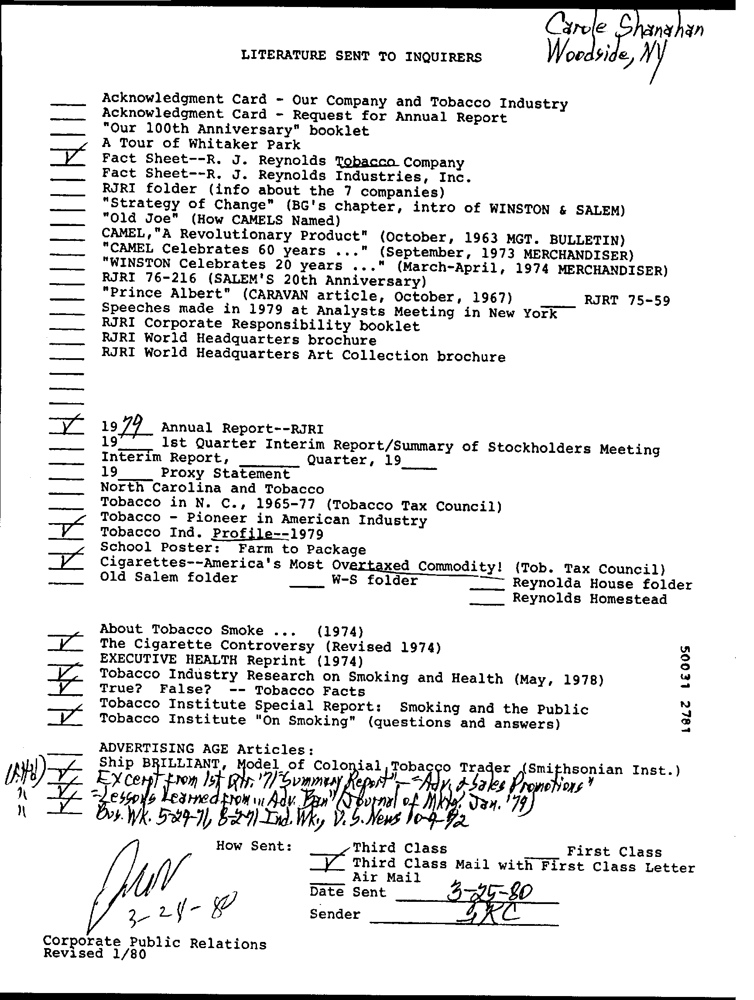 Carole Shanahan
Woodside, NY
LITERATURE SENT TO INQUIRERS
Acknowledgment Card - Our Company and Tobacco Industry
Acknowledgment Card - Request for Annual Report
"Our 100th Anniversary" booklet
A Tour of Whitaker Park
Fact Sheet--R. J. Reynolds Tobacco Company
Fact Sheet--R. J. Reynolds Industries, Inc.
RJRI folder (info about the 7 companies)
"Strategy of Change" (BG's chapter, intro of WINSTON & SALEM)
"Old Joe" (How CAMELS Named)
CAMEL,"A Revolutionary Product" (October, 1963 MGT. BULLETIN)
"CAMEL Celebrates 60 years ..." (September, 1973 MERCHANDISER)
"WINSTON Celebrates 20 years ..." (March-April, 1974 MERCHANDISER)
RJRI 76-216 (SALEM'S 20th Anniversary)
"Prince Albert" (CARAVAN article, October, 1967) ____ RJRT 75-59
Speeches made in 1979 at Analysts Meeting in New York
RJRI Corporate Responsibility booklet
RJRI World Headquarters brochure
RJRI World Headquarters Art Collection brochure
1979 Annual Report--RJRI
19____ 1st Quarter Interim Report/Summary of Stockholders Meeting
Interim Report, ______ Quarter, 19____
19____ Proxy Statement
North Carolina and Tobacco
Tobacco in N. C., 1965-77 (Tobacco Tax Council)
Tobacco - Pioneer in American Industry
Tobacco Ind. Profile--1979
School Poster: Farm to Package
Cigarettes--America's Most Overtaxed Commodity! (Tob. Tax Council)
Old Salem folder ____ W-S folder ____ Reynolda House folder
____ Reynolds Homestead
About Tobacco Smoke ... (1974)
The Cigarette Controversy (Revised 1974)
EXECUTIVE HEALTH Reprint (1974)
Tobacco Industry Research on Smoking and Health (May, 1978)
True? False? -- Tobacco Facts
Tobacco Institute Special Report: Smoking and the Public
Tobacco Institute "On Smoking" (questions and answers)
50031 2781
ADVERTISING AGE Articles:
Ship BRILLIANT, Model of Colonial Tobacco Trader (Smithsonian Inst.)
Excerpt from 1st Qtr. '71 "Summary Report" - "Adv. & Sales Promotions"
"Lessons Learned from ... Adv. Ban" (Journal of Mktg, Jan. '79)
Bus. Wk. 5-29-71, 8-27-71 Ind. Wk., U.S. News 10-9-72
How Sent: Third Class ____ First Class
Third Class Mail with First Class Letter
Air Mail
Date Sent 3-25-80
3-24-80
Sender
Corporate Public Relations
Revised 1/80